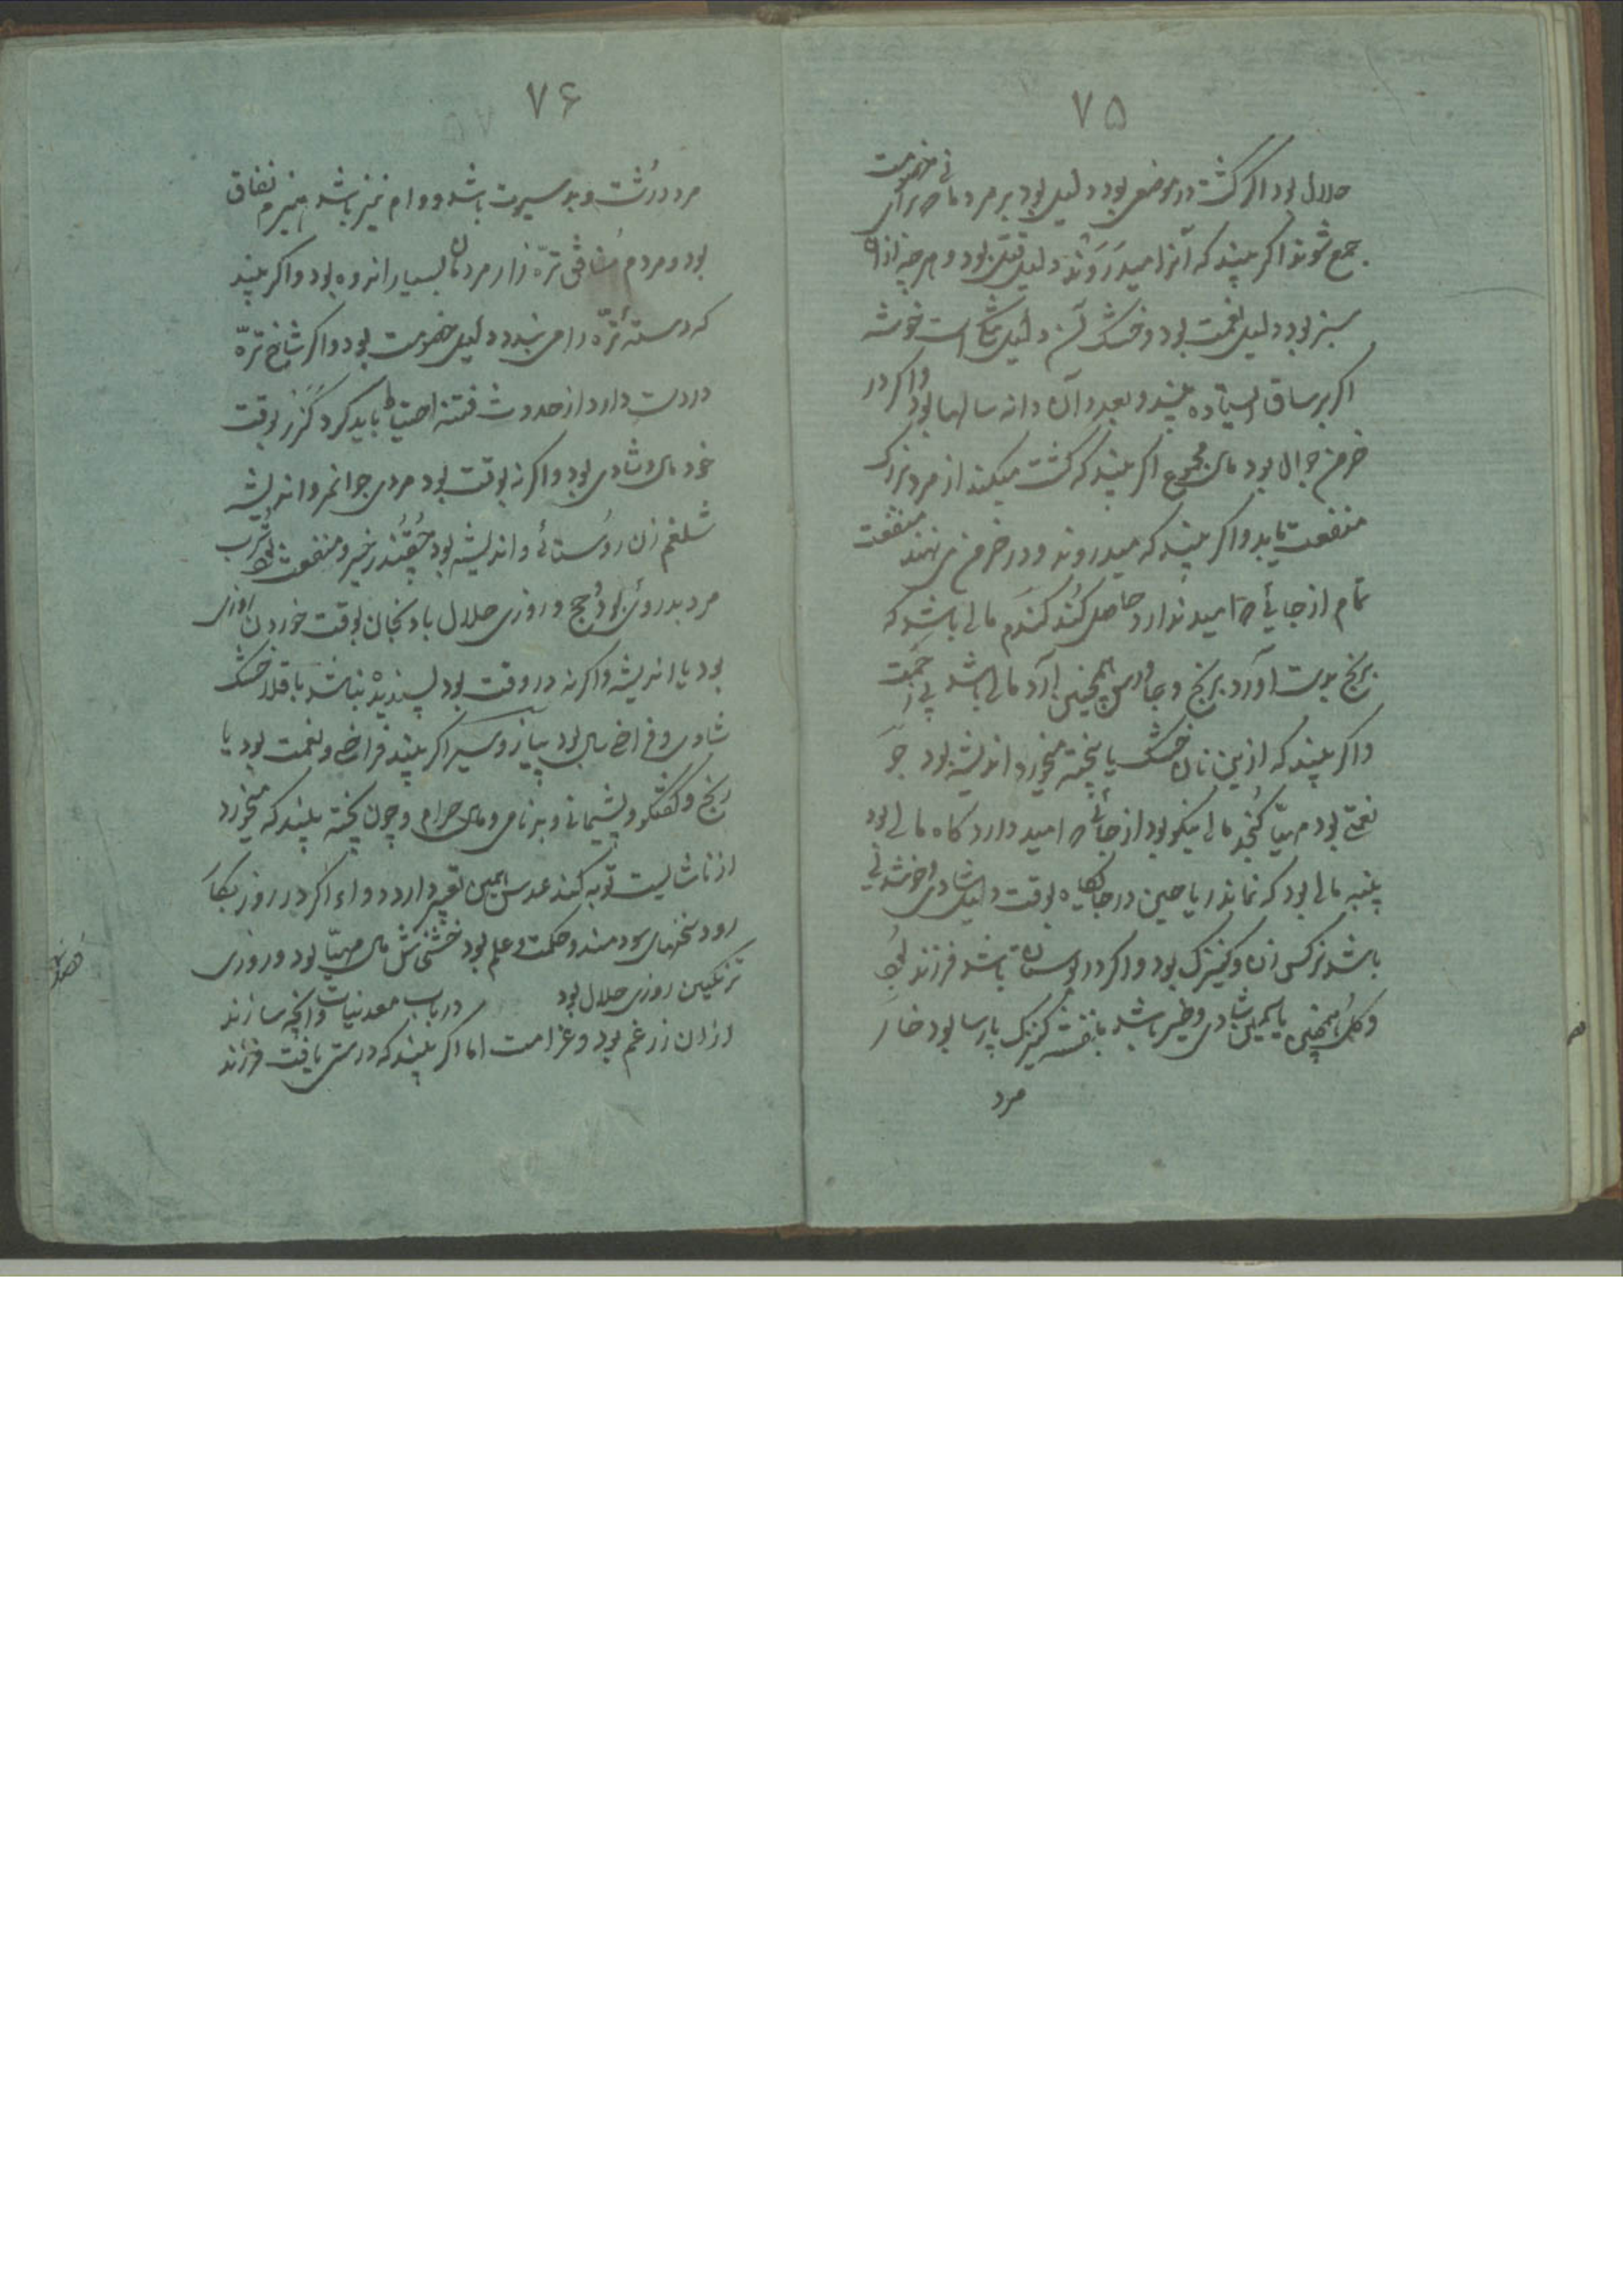 ۷۵
حلال بود اکر کشت در موضعی بود دلیل بود بر مردمان که برای خصومت
جمع شوند اکر بیند که آنرا میدروند دلیل قتل بود و هرچه از آن
سبز بود دلیل نعمت بود و خشک آن دلیل تنکی است خوشه
اکر بر ساق ایستاده بیند و بعدد آن دانه سالها بود و اکر در
خرمن جوال بود مال مجموع اکر بیند که کشت میکند از مرد بزرک
منفعت یابد و اکر بیند که میدروند و در خرمن می نهند منفعت
تمام از جائی که امید ندارد حاصل کند کندم مالی باشد که
برنج بدست آورد برنج و جاورس همچنین آرد مالی باشد بی زحمت
و اکر بیند که ازین نان خشک یا پخته میخورد اندیشه بود جو
نعمتی بود مهیّا کنجد مالی نیکو بود از جائی که امید دارد کاه مالی بود
پنبه مالی بود که نماند ریاحین در جایکاه بوقت دلیل شادی و خوشدلی
باشد نرکس زن و کنیزک بود و اکر در بوستان باشد فرزند بود
و کل همچنین یاسمین شادی و خیر باشد بنفشه کنیزک پارسا بود خار
مرد
۷۶
مرد درشت و بد سیرت باشد و وام نیز باشد هیزم نفاق
بود و مردم منافق ترّه زار مردمان بسیار اندوه بود و اکر بیند
که دستهٔ ترّه را می بندد دلیل خصومت بود و اکر شاخ ترّه
در دست دارد از حدوث فتنه احتیاط باید کرد کزر بوقت
خود مال و شادی بود و اکر نه بوقت بود مردی جوانمرد و اندیشه
شلغم زن روستائی و اندیشه بود چقندر خیر و منفعت بود ترب
مرد بد روی بود و حج و روزی حلال بادنجان بوقت خوردن روزی
بود یا اندیشه و اکر نه در وقت بود پسندیده نباشد باقلا خشک
شادی و فراخ سالی بود پیاز و سیر اکر بیند فراخی و نعمت بود یا
رنج و کفتکو و پشیمانی و بدنامی و مال حرام و چون پخته بیند که میخورد
از ناشایست توبه کند عدس همین تعبیر دارد دواء اکر در روز بکار
رود سخنهای سودمند و حکمت و علم بود خشخاش مال مهیّا بود و روزی
ترنکبین روزی حلال بود در باب معدنیات و آنچه سازند
ازان زر غم بود و غرامت اما اکر بیند که درستی یافت فرزند